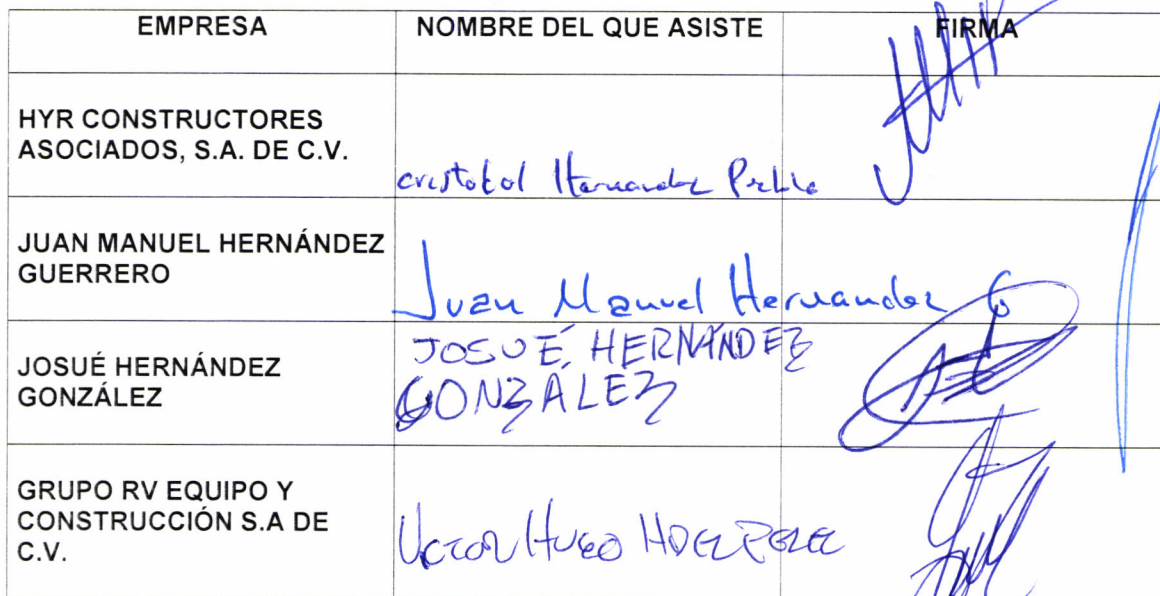 EMPRESA NOMBRE DEL QUE ASISTE FIRMA
HYR CONSTRUCTORES
ASOCIADOS, S.A. DE C.V.
cristobol Hernandez
JUAN MANUEL HERNÁNDEZ
GUERRERO
Juan Manuel Hernandez G
JOSUÉ HERNÁNDEZ
GONZÁLEZ
JOSUÉ HERNÁNDEZ
GONZÁLEZ
GRUPO RV EQUIPO Y
CONSTRUCCIÓN S.A DE
C.V.
Victor Hugo HDEZ PEREZ